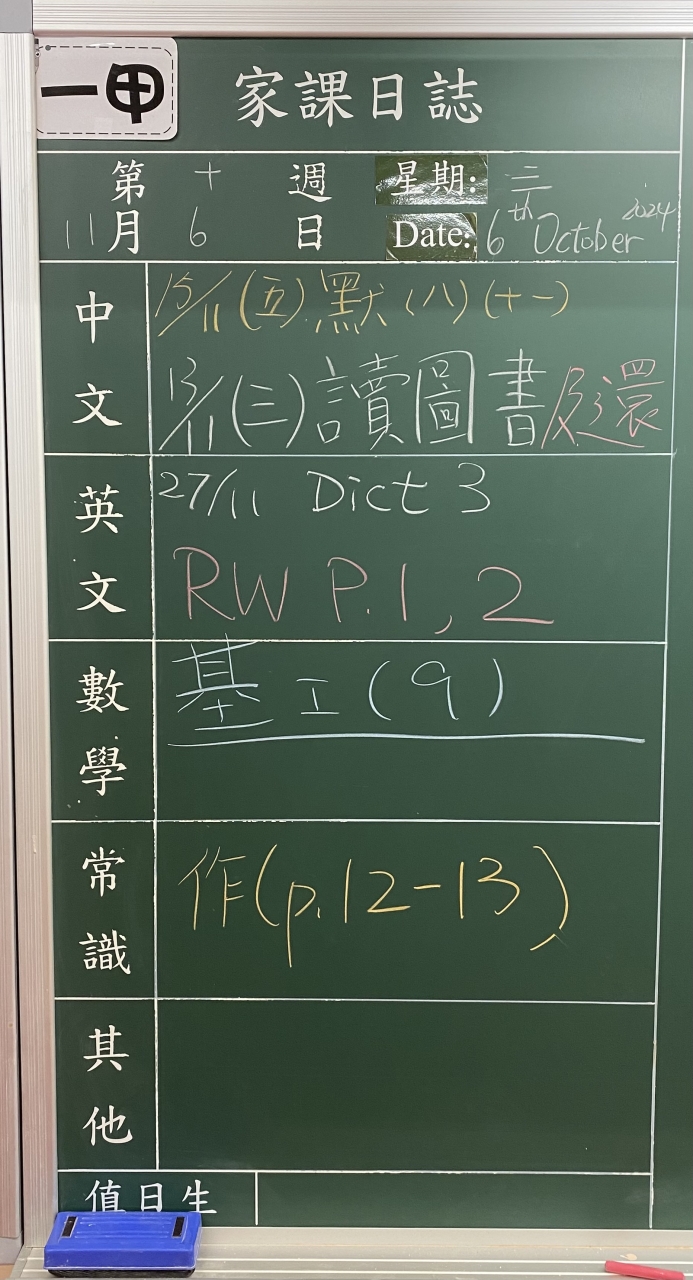 一甲
家課日誌
第 十 週 星期: 三
11月 6 日 Date: 6th October 2024
中文
15/11 (五) 默 (八) (十一)
13/11 (三) 讀圖書及還
英文
27/11 Dict 3
RW P.1, 2
數學
基工(9)
常識
作(p.12-13)
其他
值日生